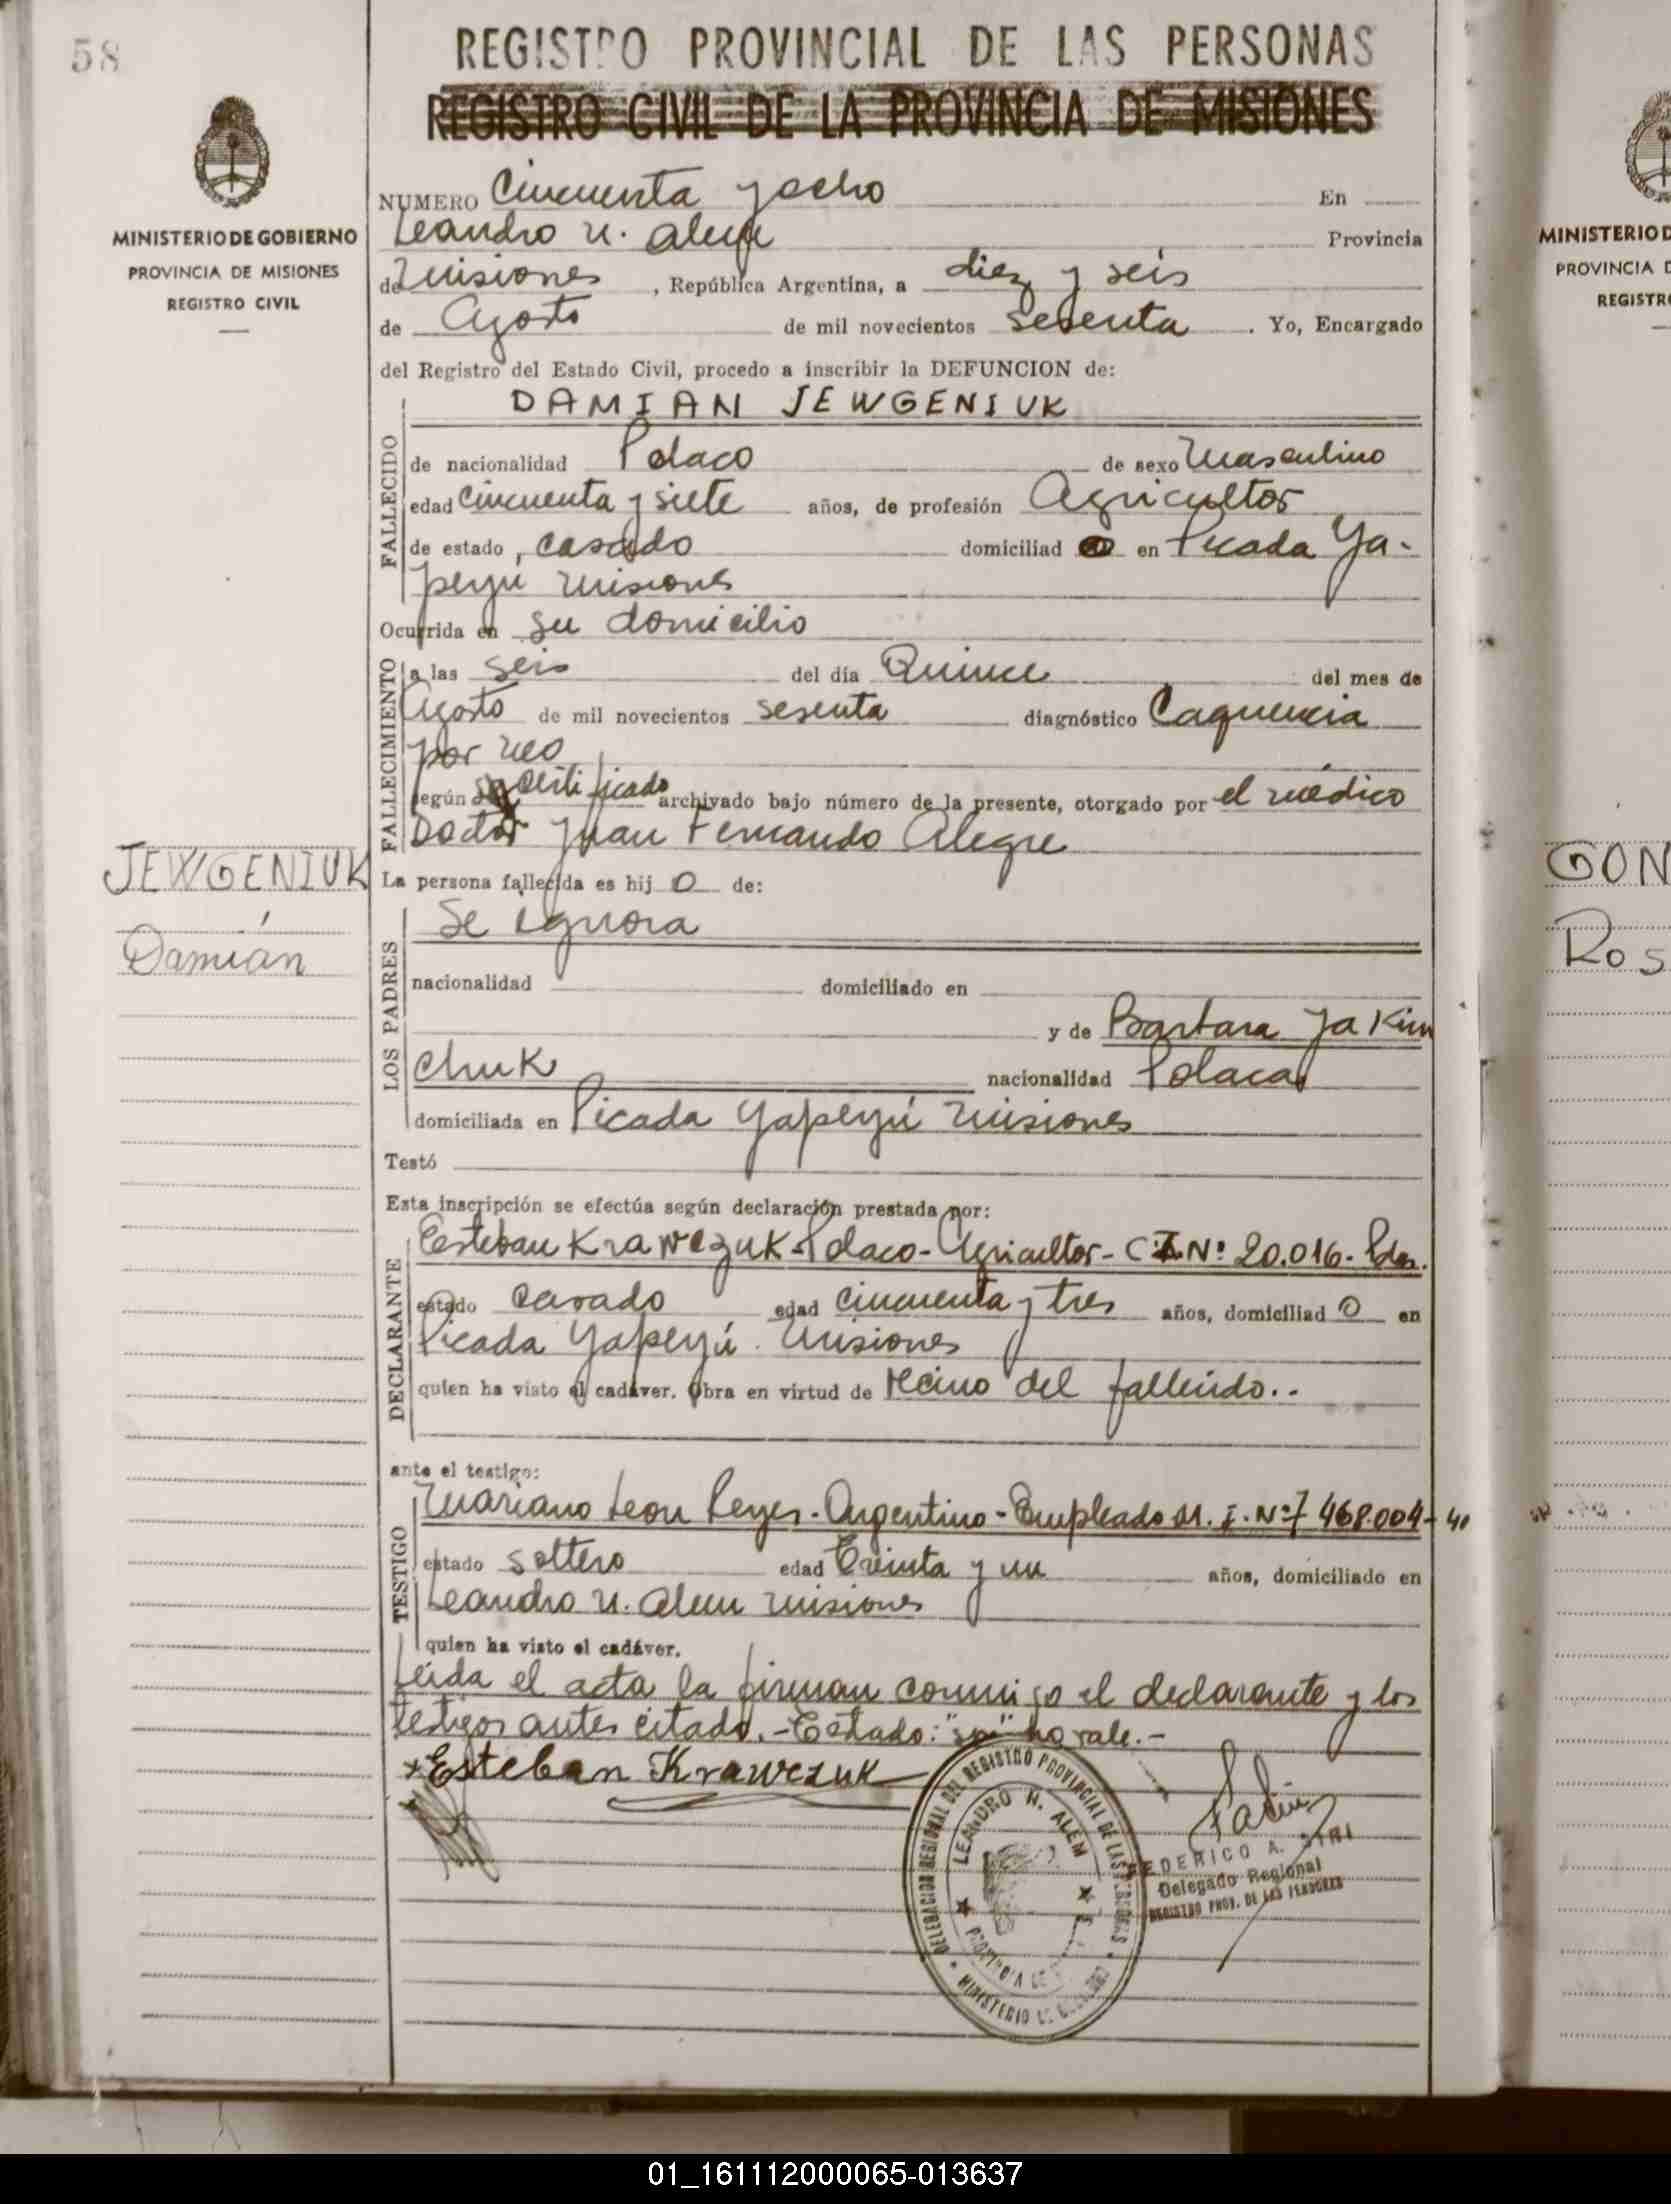 58
REGISTRO PROVINCIAL DE LAS PERSONAS
REGISTRO CIVIL DE LA PROVINCIA DE MISIONES
MINISTERIO DE GOBIERNO
PROVINCIA DE MISIONES
REGISTRO CIVIL
NUMERO Cincuenta y ocho En
Leandro N. Alem Provincia
de Misiones, República Argentina, a diez y seis
de Agosto de mil novecientos sesenta. Yo, Encargado
del Registro del Estado Civil, procedo a inscribir la DEFUNCION de:
DAMIAN JEWGENIUK
FALLECIDO
de nacionalidad Polaco de sexo Masculino
edad Cincuenta y siete años, de profesión Agricultor
de estado, casado domiciliad o en Picada Ya-
peyu Misiones
Ocurrida en su domicilio
FALLECIMIENTO
a las seis del día Quince del mes de
Agosto de mil novecientos sesenta diagnóstico Caquexia
por neo
según certificado archivado bajo número de la presente, otorgado por el médico
Doctor Juan Fernando Alegre
JEWGENIUK
Damián
La persona fallecida es hij o de:
LOS PADRES
Se ignora
nacionalidad domiciliado en
y de Barbara Jakim
chuk nacionalidad Polaca
domiciliada en Picada Yapeyú Misiones
Testó
Esta inscripción se efectúa según declaración prestada por:
DECLARANTE
Esteban Krawczuk-Polaco-Agricultor-C.I.Nº 20.016-Pdas.
estado casado edad cincuenta y tres años, domiciliad o en
Picada Yapeyú. Misiones
quien ha visto el cadáver. Obra en virtud de vecino del fallecido.-
ante el testigo:
TESTIGO
Mariano Leon Reyes-Argentino-Empleado M.I.Nº 7468.004-
estado soltero edad treinta y un años, domiciliado en
Leandro N. Alem Misiones
quien ha visto el cadáver.
Leida el acta la firman conmigo el declarante y los
testigos antes citado.- no vale.-
Esteban Krawczuk
DELEGACION REGIONAL DEL REGISTRO PROVINCIAL DE LAS PERSONAS
LEANDRO N. ALEM
PROVINCIA DE
MINISTERIO DE GOBIERNO
FEDERICO A.
Delegado Regional
REGISTRO PROV. DE LAS PERSONAS
MINISTERIO D
PROVINCIA D
REGISTR
GON
Ros
01_161112000065-013637